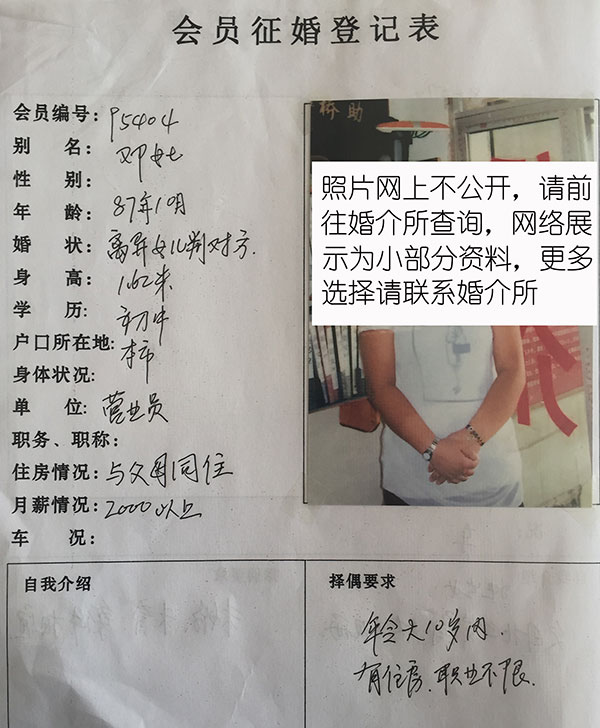 会员征婚登记表
会员编号: P5404
别 名: 邓女士
性 别:
年 龄: 87年10月
婚 状: 离异女儿判对方.
身 高: 1.62米
学 历: 初中
户口所在地: 本市
身体状况:
单 位: 营业员
职务、职称:
住房情况: 与父母同住
月薪情况: 2000以上
车 况:
桥助
照片网上不公开，请前
往婚介所查询，网络展
示为小部分资料，更多
选择请联系婚介所
自我介绍
择偶要求
年令大10岁内.
有住房.职业不限.